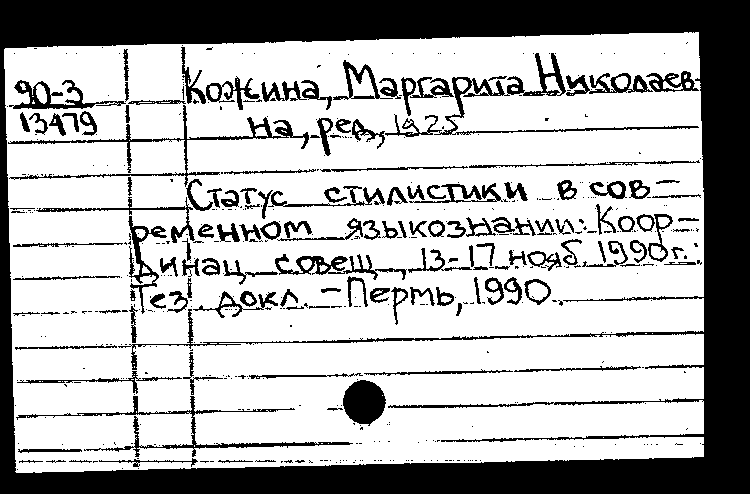 90-3
13479
Кожина, Маргарита Николаев-
на, ред., 1925
Статус стилистики в сов-
ременном языкознании: Коор-
динац. совещ., 13-17 нояб. 1990г.:
Тез. докл. - Пермь, 1990.